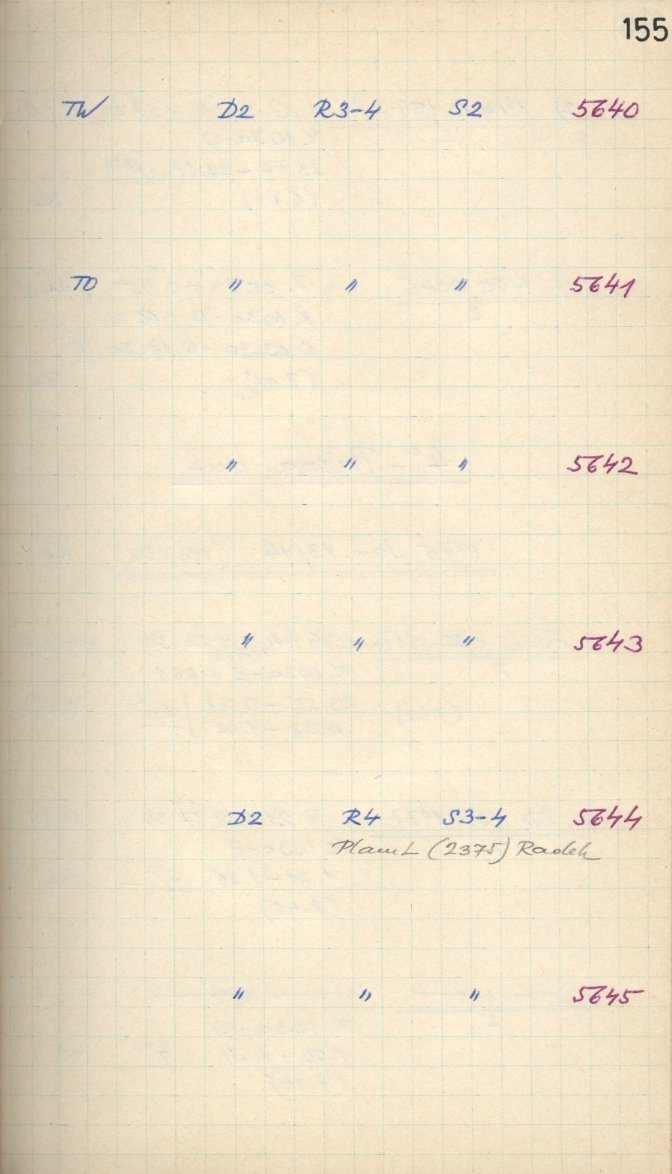 155
TW D2 R3-4 S2 5640
TO " " " 5641
" " " 5642
" " " 5643
D2 R4 S3-4 5644
Planet (2375) Radek
" " " 5645